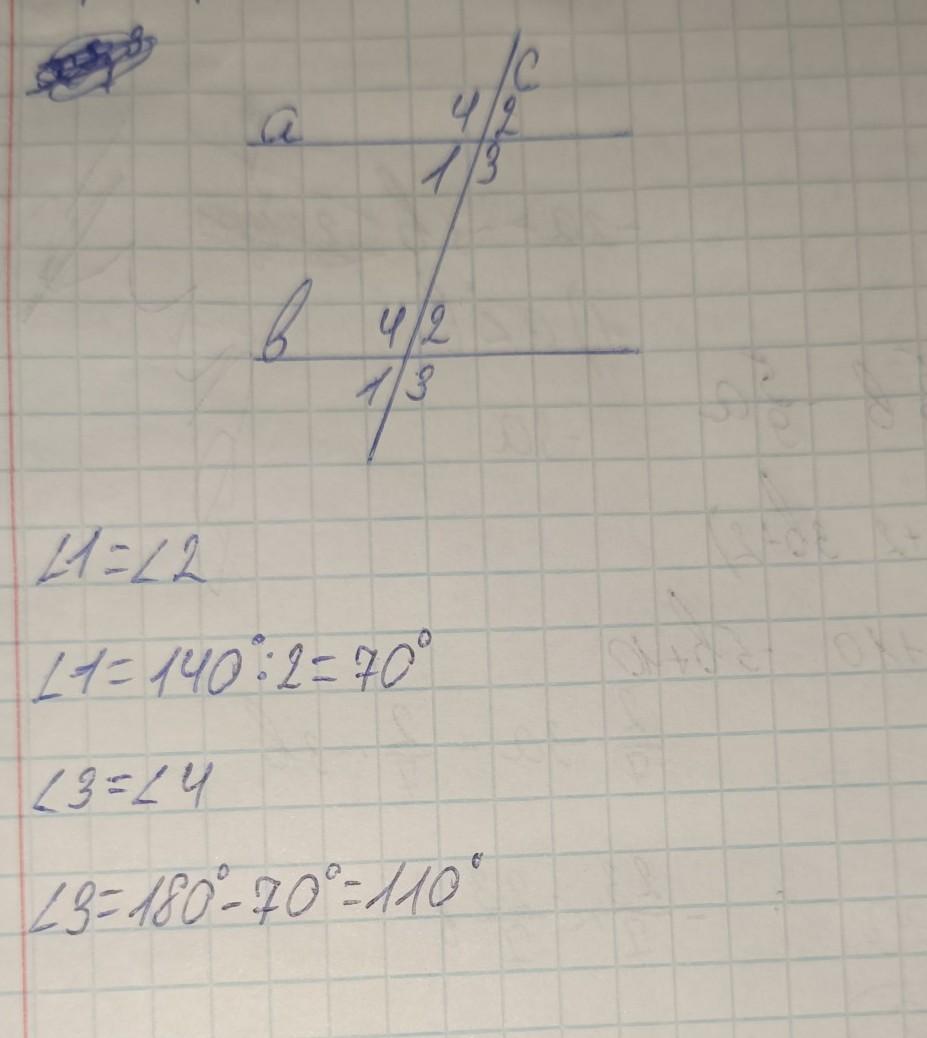 c
a
4 2
1 3
в
4 2
1 3
∠1=∠2
∠1=140°:2=70°
∠3=∠4
∠3=180°-70°=110°